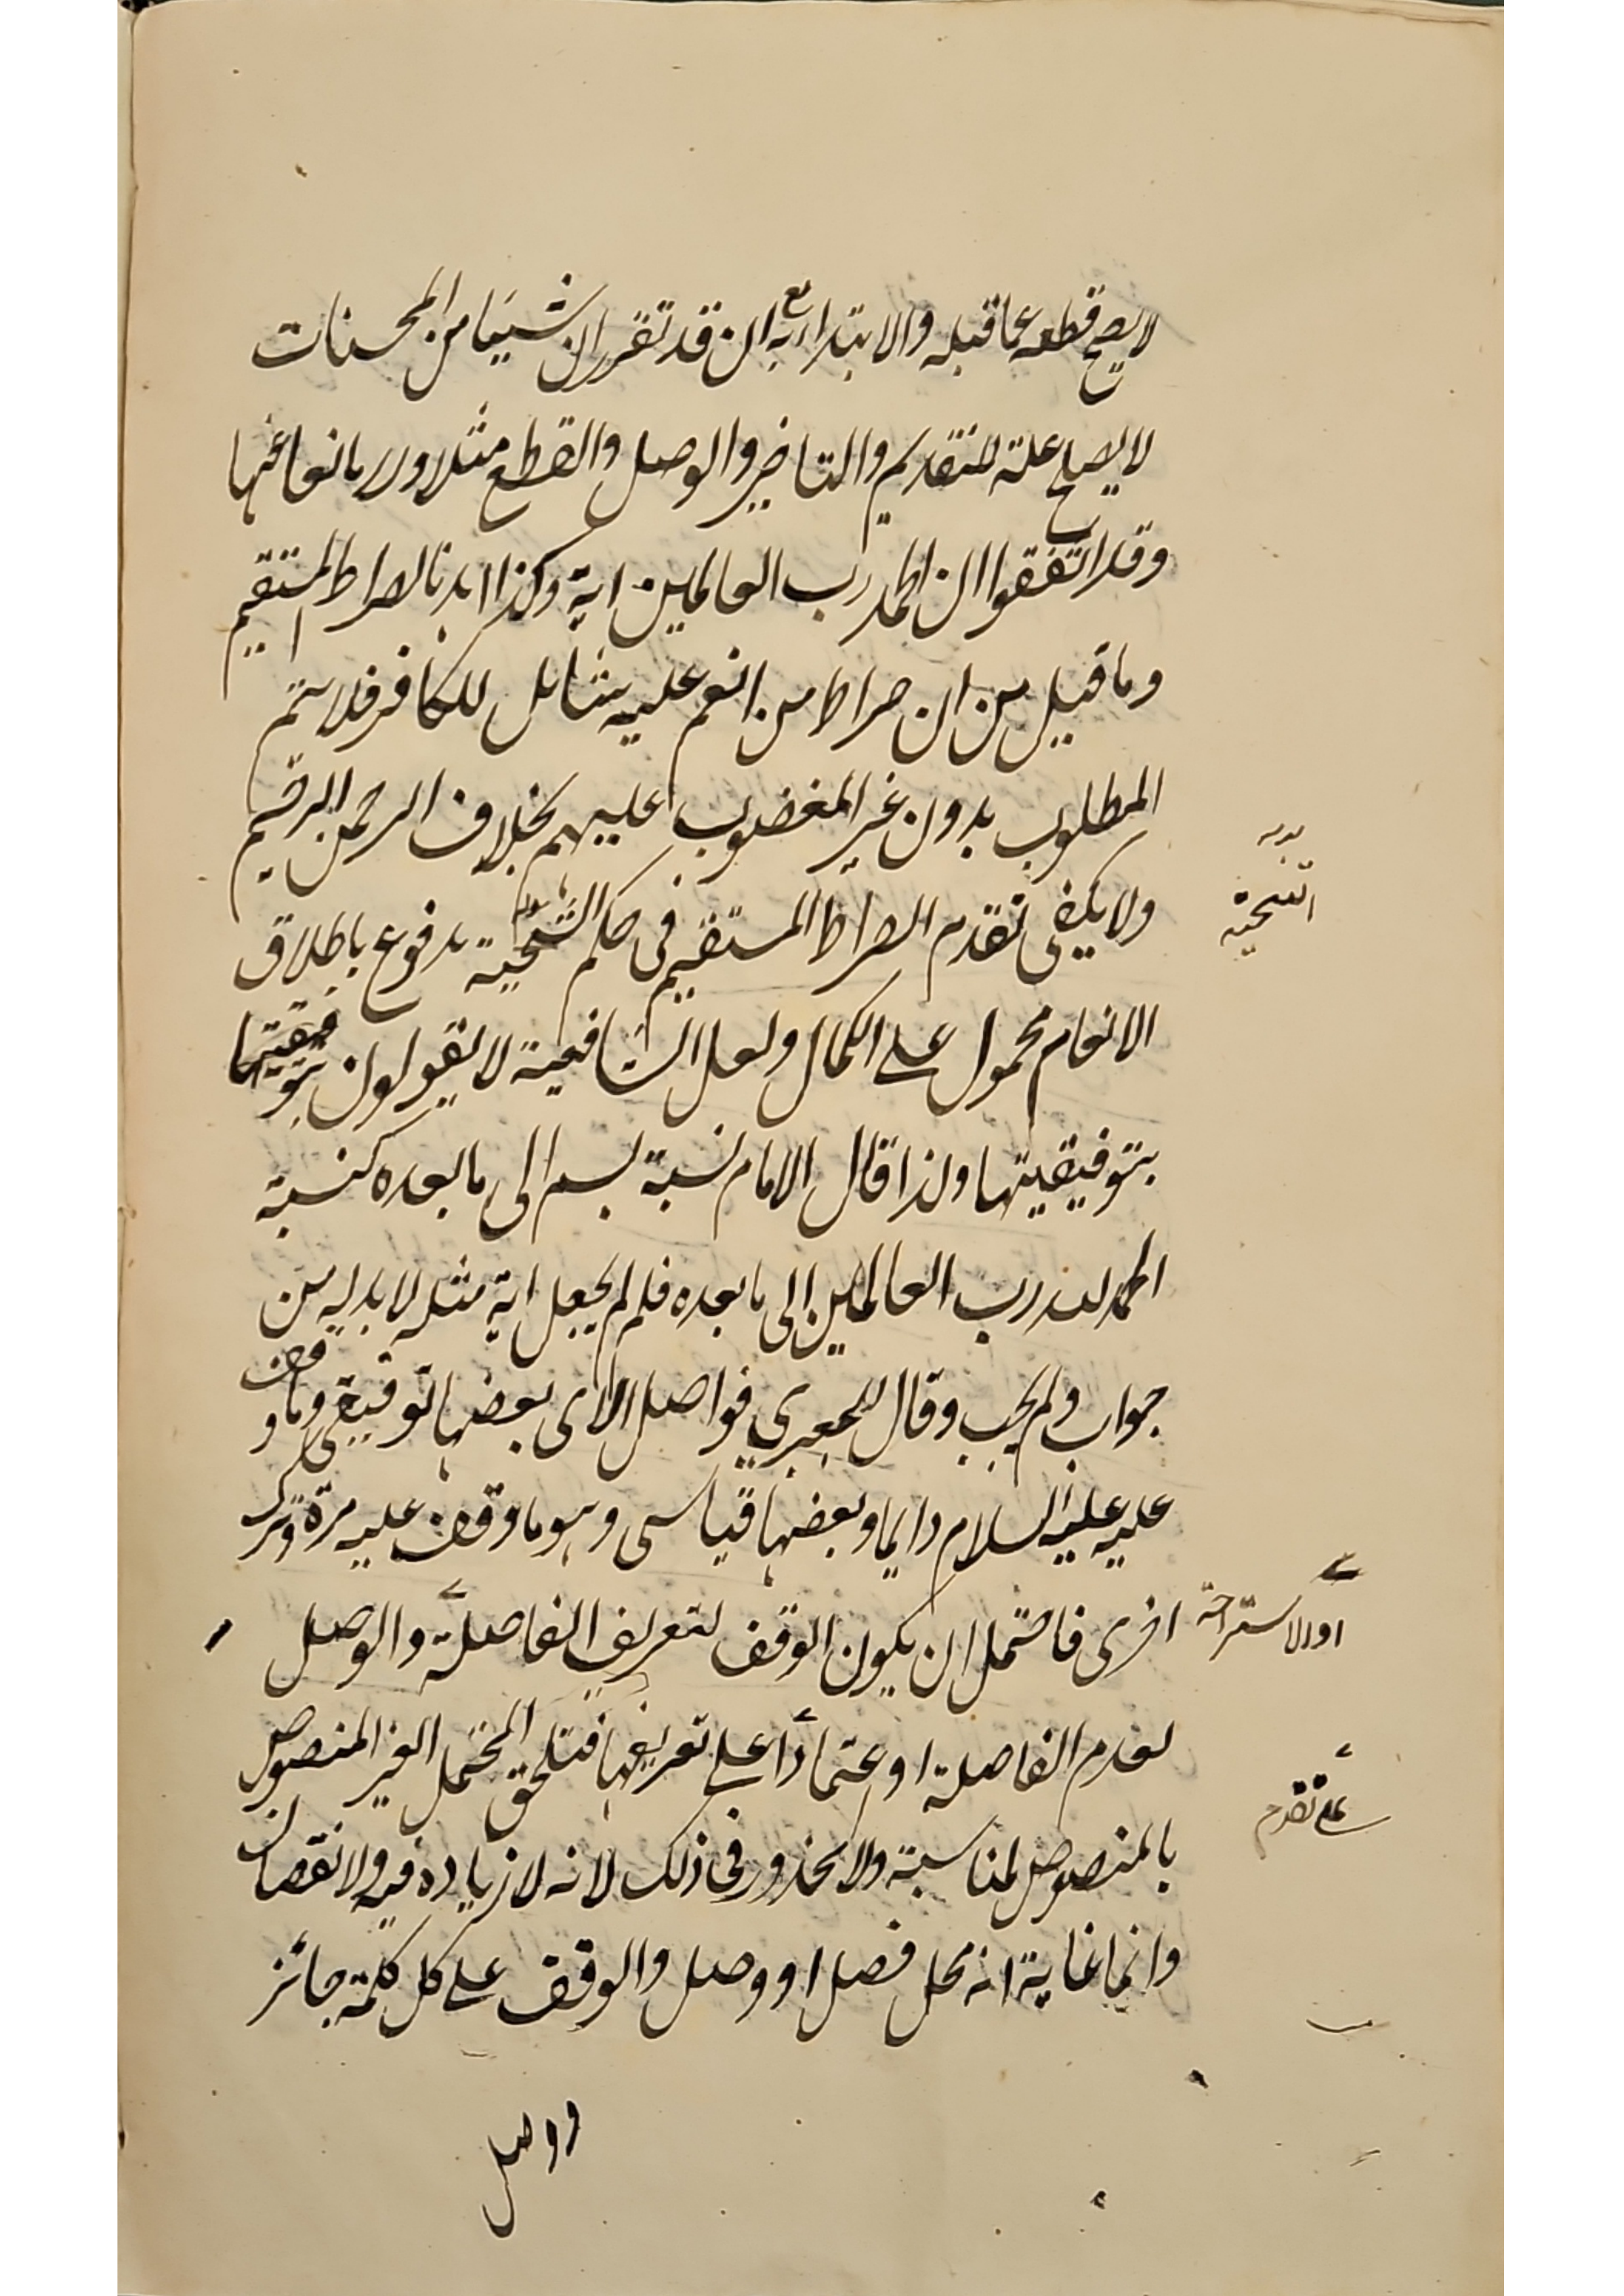 لا يصح قطعه عما قبله والابتداء به مع ان قد تقرر ان شيئا من المحسنات
لا يصلح علة للتقديم والتاخير والوصل والقطع مثلا ولا مانعا عنها
وقد اتفقوا ان الحمد رب العالمين اية وكذا اهدنا الصراط المستقيم
وما قيل من ان صراط من انعم عليه شامل للكافر فلا يتم
المطلوب بدون غير المغضوب عليهم بخلاف الرحمن الرحيم
ولا يكفي تقدم الصراط المستقيم في حكم مدفوع باطلاق
الانعام محمول على الكمال ولعل الشافعية لا يقولون
بتوفيقيتها ولذا قال الامام نسبة بسم الى ما بعده كنسبة
الحمد لله رب العالمين الى ما بعده فلم لم يجعل اية مثله لا بد له من
جواب ولم يجب وقال الجعبري فواصل الاى بعضها توقيفي وما وقف
عليه عليه السلام دايما وبعضها قياسى وهو ما وقف عليه مرة وترك
اخرى فاحتمل ان يكون الوقف لتعريف الفاصلة والوصل
او لاستراحة
لعدم الفاصلة او عتمادا على تعريفها فتلحق المحتمل الغير المنصوص
على تقدم
بالمنصوص لمناسبة ولا محذور في ذلك لانه لا زياده فيه ولا نقصان
وانما غاية انه محل فصل او وصل والوقف على كل كلمة جائز
ووصل